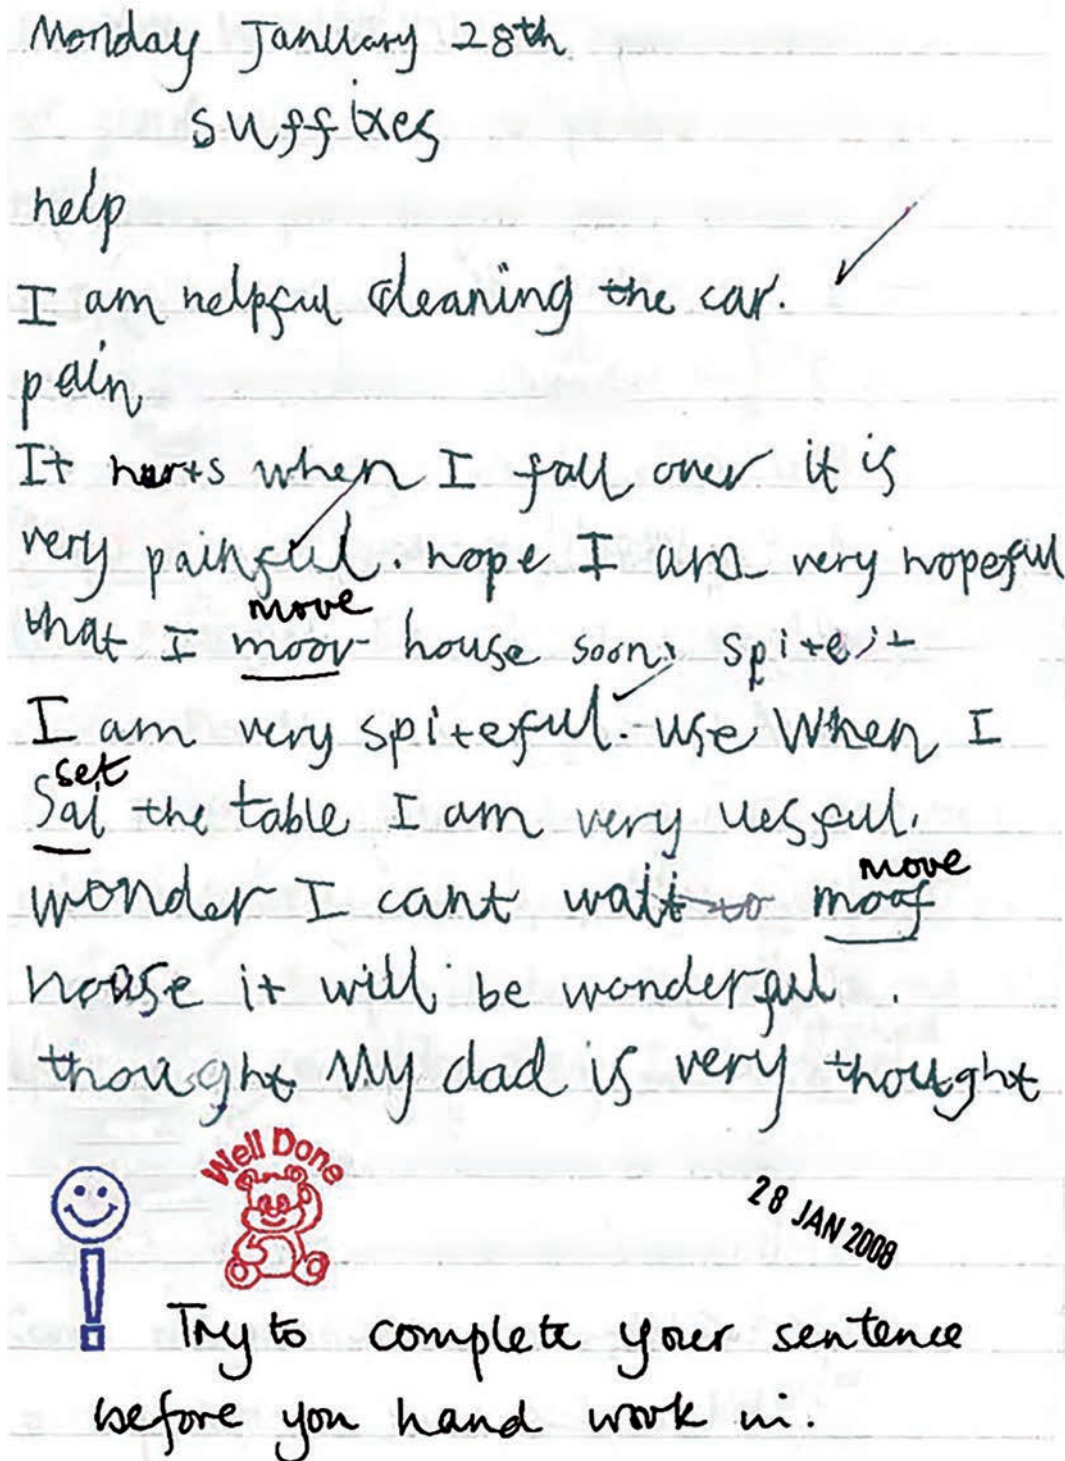 Monday January 28th.
suffixes
help
I am helpful cleaning the car.
pain
It hurts when I fall over it is
very painful. hope I am very hopeful
move
that I moov house soon. spite it
I am very spiteful. use When I
set
Sai the table I am very uesful.
move
wonder I cant wait to moof
house it will be wonderful.
thought My dad is very thought
Well Done
28 JAN 2008
Try to complete your sentence
before you hand work in.